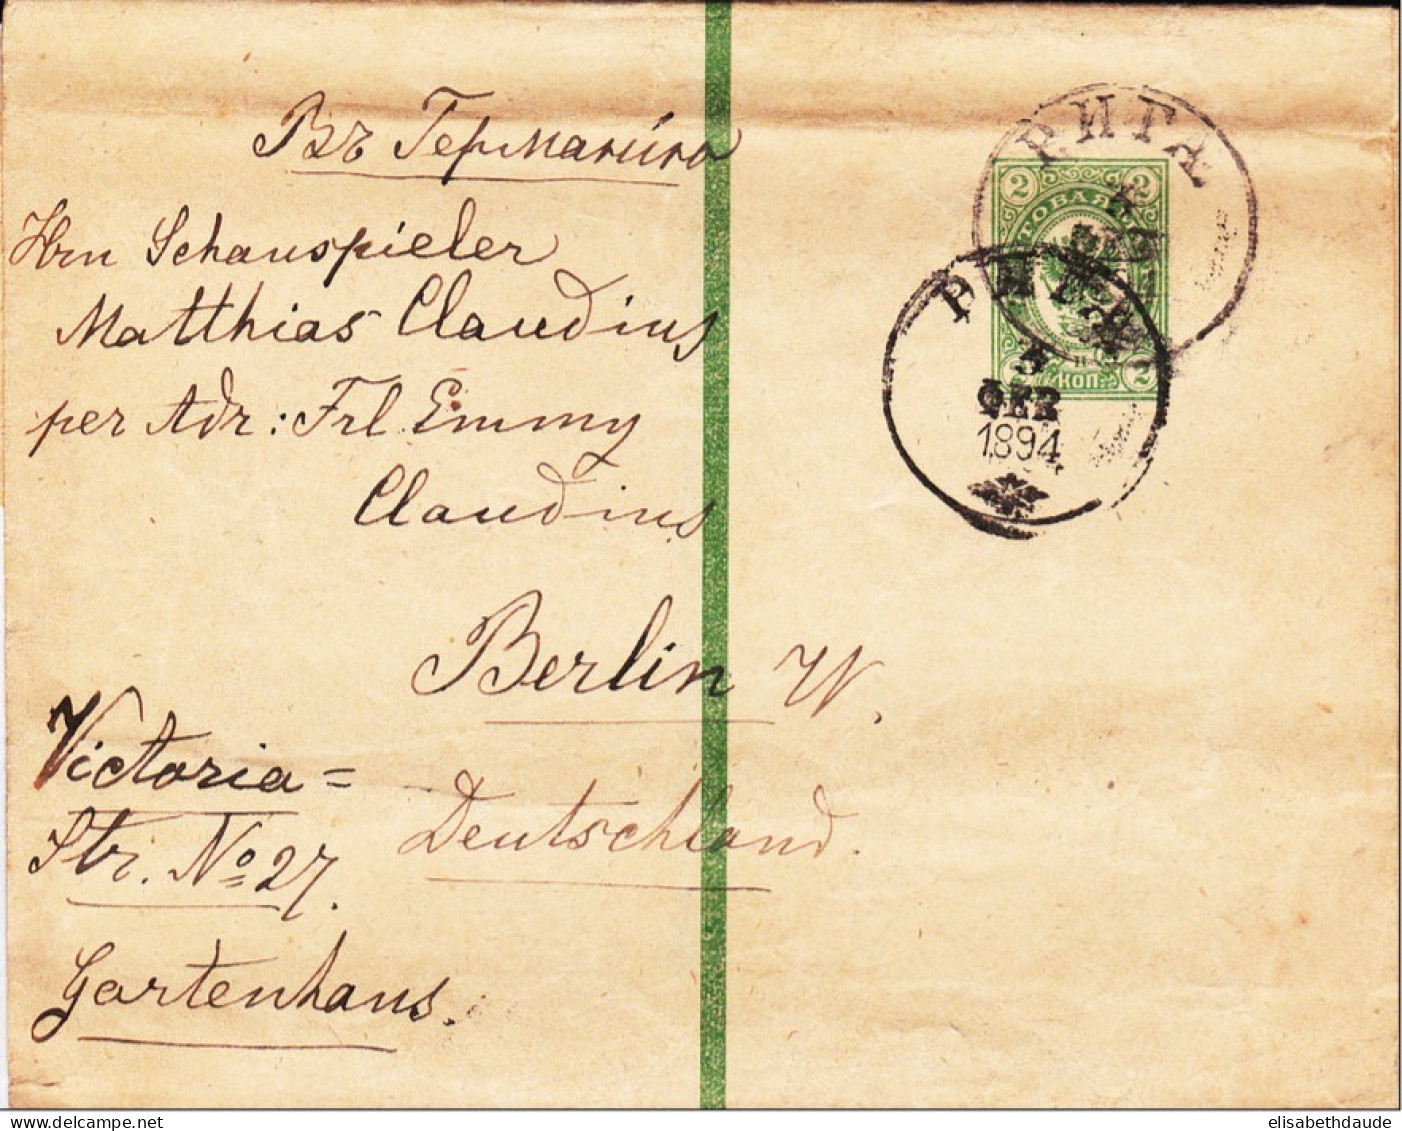 Въ Германію
РИГА
2 2
ПОЧТОВАЯ
Hrn Schauspieler
РИГА
Matthias Claudius
5
ФЕВ
1894
2 КОП. 2
per Adr: Frl Emmy
Claudius
Berlin W.
Victoria=
Str. No 27.
Deutschland.
Gartenhaus.
www.delcampe.net
elisabethdaude